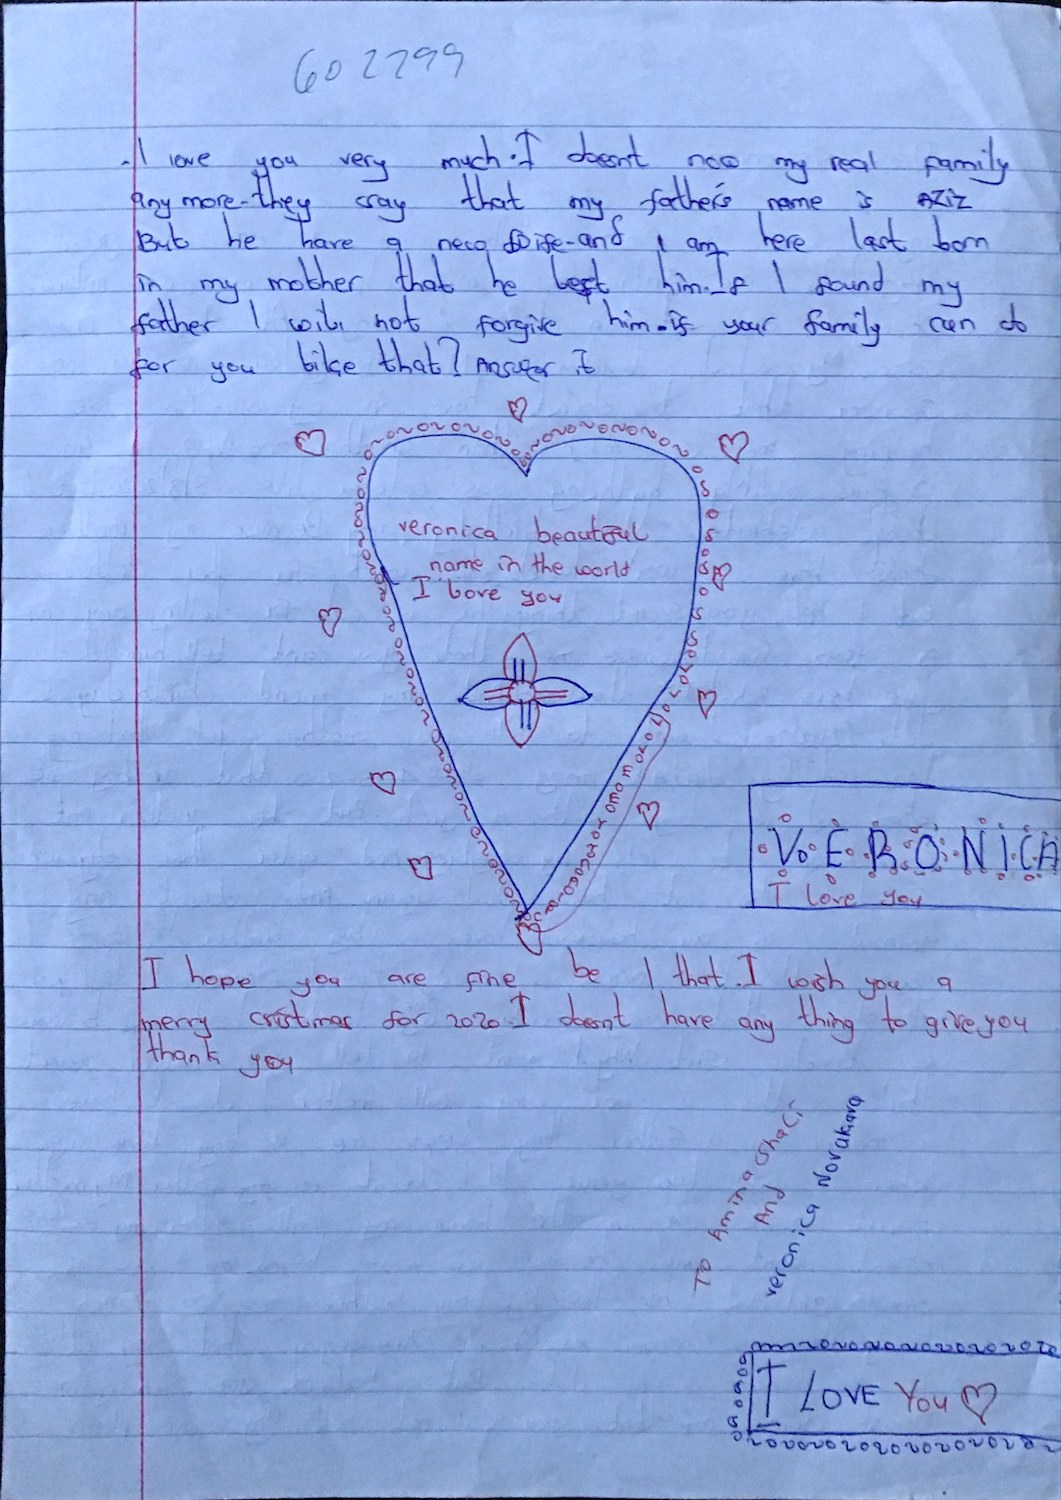 602799
I love you very much. I doesnt now my real family
any more. they say that my father's name is AZIZ
But he have a new wife. and I am here last born
in my mother that he left him. If I found my
father I will not forgive him. if your family can do
for you like that? Answer it
veronica beautiful
name in the world
I love you
VERONICA
I love you
I hope you are fine be I that. I wish you a
merry cristmas for 2020. I doesnt have any thing to give you
thank you
To Amina
And
veronica Novakova
I LOVE YOU